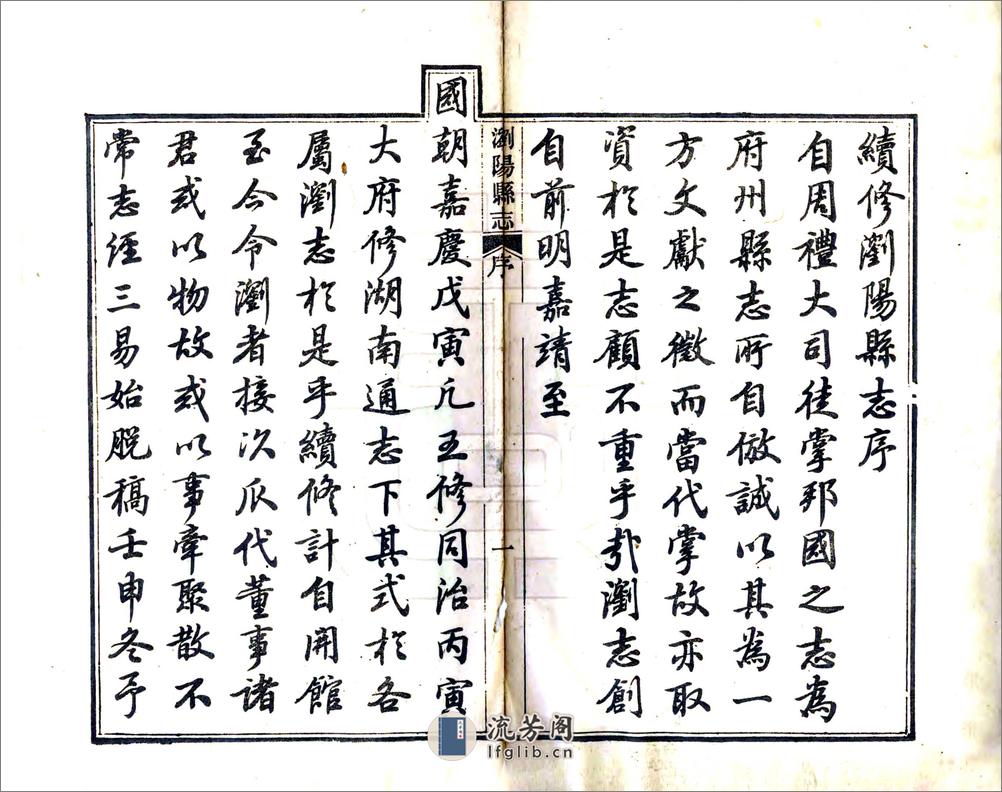 續修瀏陽縣志序
自周禮大司徒掌邦國之志為
府州縣志所自倣誠以其為一
方文獻之徵而當代掌故亦取
資於是志顧不重乎哉瀏志創
自前明嘉靖至
瀏陽縣志 序 一
國朝嘉慶戊寅凡五修同治丙寅
大府修湖南通志下其式於各
屬瀏志於是乎續修計自開館
至今令瀏者接次瓜代董事諸
君或以物故或以事牽聚散不
常志經三易始脫稿壬申冬予
流芳阁
lfglib.cn